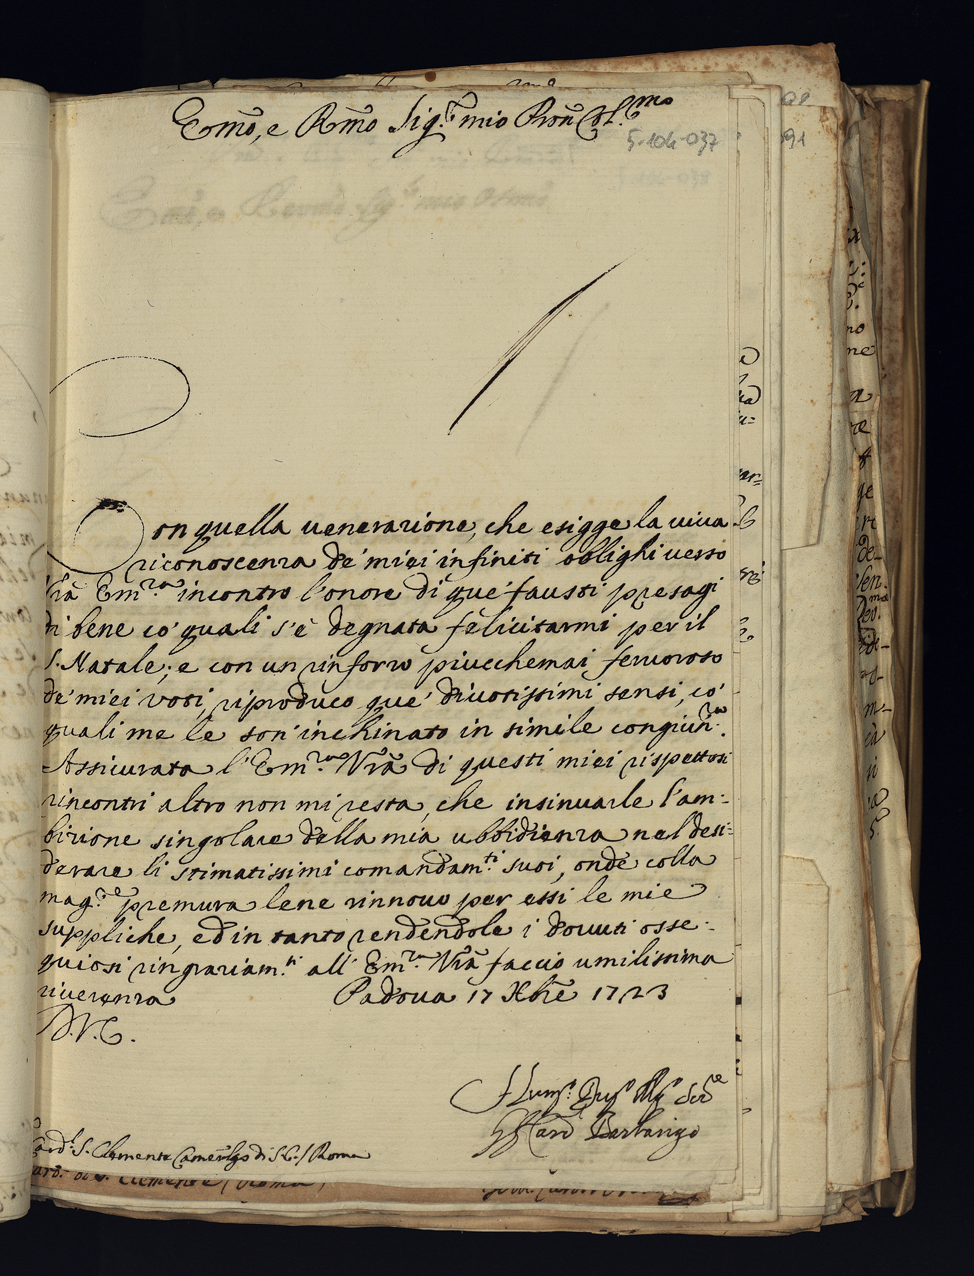 Em̃o, e Rm̃o Sig.r mio Pron̄ Col.mo
5-104-037
Con quella venerazione, che esigge la viva
riconoscenza de' miei infiniti oblighi verso
Vr̃a Em.za incontro l'onore di que' fausti presagi
di bene co' quali s'è degnata felicitarmi per il
S. Natale; e con un rinforzo piucchemai fervoroso
de' miei voti, riproduco que' divotissimi sensi, co'
quali me le son' inchinato in simile congiun.ra
Assicurata l'Em.za Vr̃a di questi miei rispettosi
rincontri altro non mi resta, che insinuarle l'am-
bizione singolare della mia ubbidienza nel desi-
derare li stimatissimi comandam.ti suoi, onde colla
mag.re premura lene rinnovo per essi le mie
suppliche, ed in tanto rendendole i dovuti osse-
quiosi ringraziam.ti all' Em.za Vr̃a faccio umilissima
riverenza Padova 17 Xbr̃e 1723
D.V.E.
Hum.o Dev.o Ser.re
Card. Barbarigo
Card.l S. Clemente Camerlgo di S.C./ Roma